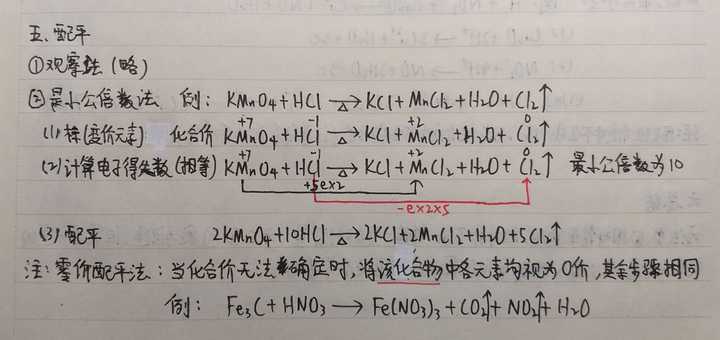 五、配平
①观察法（略）
②最小公倍数法 例：KMnO4+HCl →△ KCl+MnCl2+H2O+Cl2↑
(1)标(变价元素) 化合价 +7 KMnO4+HCl -1 →△ KCl+MnCl2 +2 +H2O+Cl2↑ 0
(2)计算电子得失数(相等) +7 KMnO4+HCl -1 →△ KCl+MnCl2 +2 +H2O+Cl2↑ 0 最小公倍数为10
+5e×2
-e×2×5
(3)配平 2KMnO4+10HCl →△ 2KCl+2MnCl2+H2O+5Cl2↑
注：零价配平法：当化合价无法确定时，将该化合物中各元素均视为0价，其余步骤相同
例：Fe3C+HNO3 → Fe(NO3)3+CO2↑+NO2↑+H2O